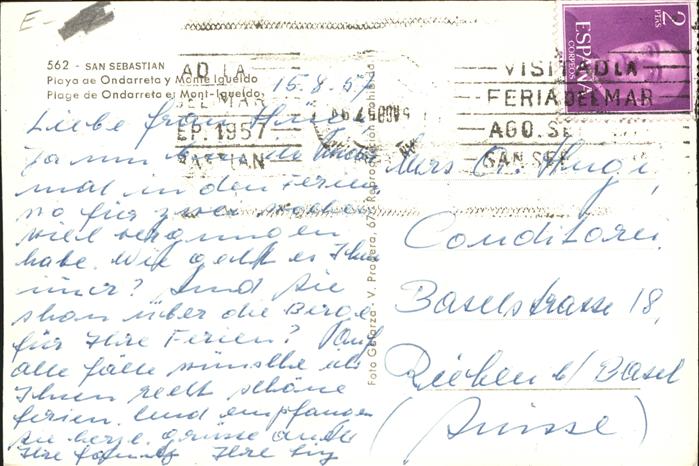 E-
562 - SAN SEBASTIAN
Playa de Ondarreta y Monte Igueldo
Plage de Ondarreta et Mont-Igueldo
15.8.57
2
PTAS
ESPAÑA
CORREOS
VISITAD LA
FERIA DEL MAR
AGO. SE
SAN SEB
AD LA
DEL MAR
EP. 1957
BASTIAN
Foto Galarza - V. Pradera, 67 - Reproduccion prohibida
Liebe Frau Hugi
Ja nun bin
mal in den Ferien
wo für zwei Wochen
viel vergnügen
habe. Wie geht es Ihnen
immer? Sind Sie
schon über die Berge
für Ihre Ferien? Auf
alle fälle wünsche ich
Ihnen recht schöne
ferien. Und empfangen
sie herzl. grüsse auch
Ihre family Ihre
Mrs Hugi,
Conditorei,
Baselstrasse 18,
Riehen b/ Basel
(Suisse)